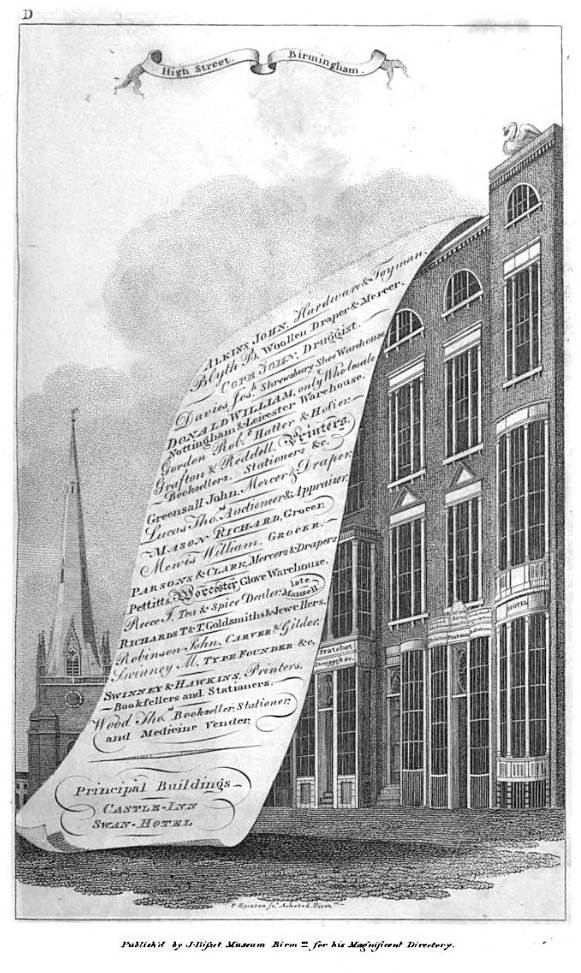 D
High Street. Birmingham.
ALKINS JOHN, Hardware & Toyman.
Blyth B. Woollen Draper & Mercer.
COPE JOHN, Druggist.
Davies Jos.h Shrewsbury Shoe Warehouse
DONALD WILLIAM, only Wholesale
Nottingham & Leicester Warehouse.
Gordon Rob.t Hatter & Hosier.
Grafton & Reddell, Printers,
Booksellers, Stationers &c.
Greensall John, Mercer & Draper,
Lucas Tho.s Auctioneer & Appraiser,
MASON RICHARD, Grocer,
Mewis William, GROCER,
PARSONS & CLARK, Mercers & Drapers
Pettitts, Worcester Glove Warehouse.
Reece J. Tea & Spice Dealer, late Mansell
RICHARDS T & T. Goldsmiths & Jewellers,
Robinson John, CARVER & Gilder,
Swinney M. TYPE FOUNDER &c.
SWINNEY & HAWKINS, Printers,
Bookfellers and Stationers.
Wood Tho.s Bookseller, Stationer,
and Medicine Vender,
Principal Buildings
CASTLE-INN
SWAN-HOTEL
HOTEL
Druggist &c.
Ashsted, Birm.m
Publish'd by J. Bifset Museum Birm.m for his Magnificent Directory.